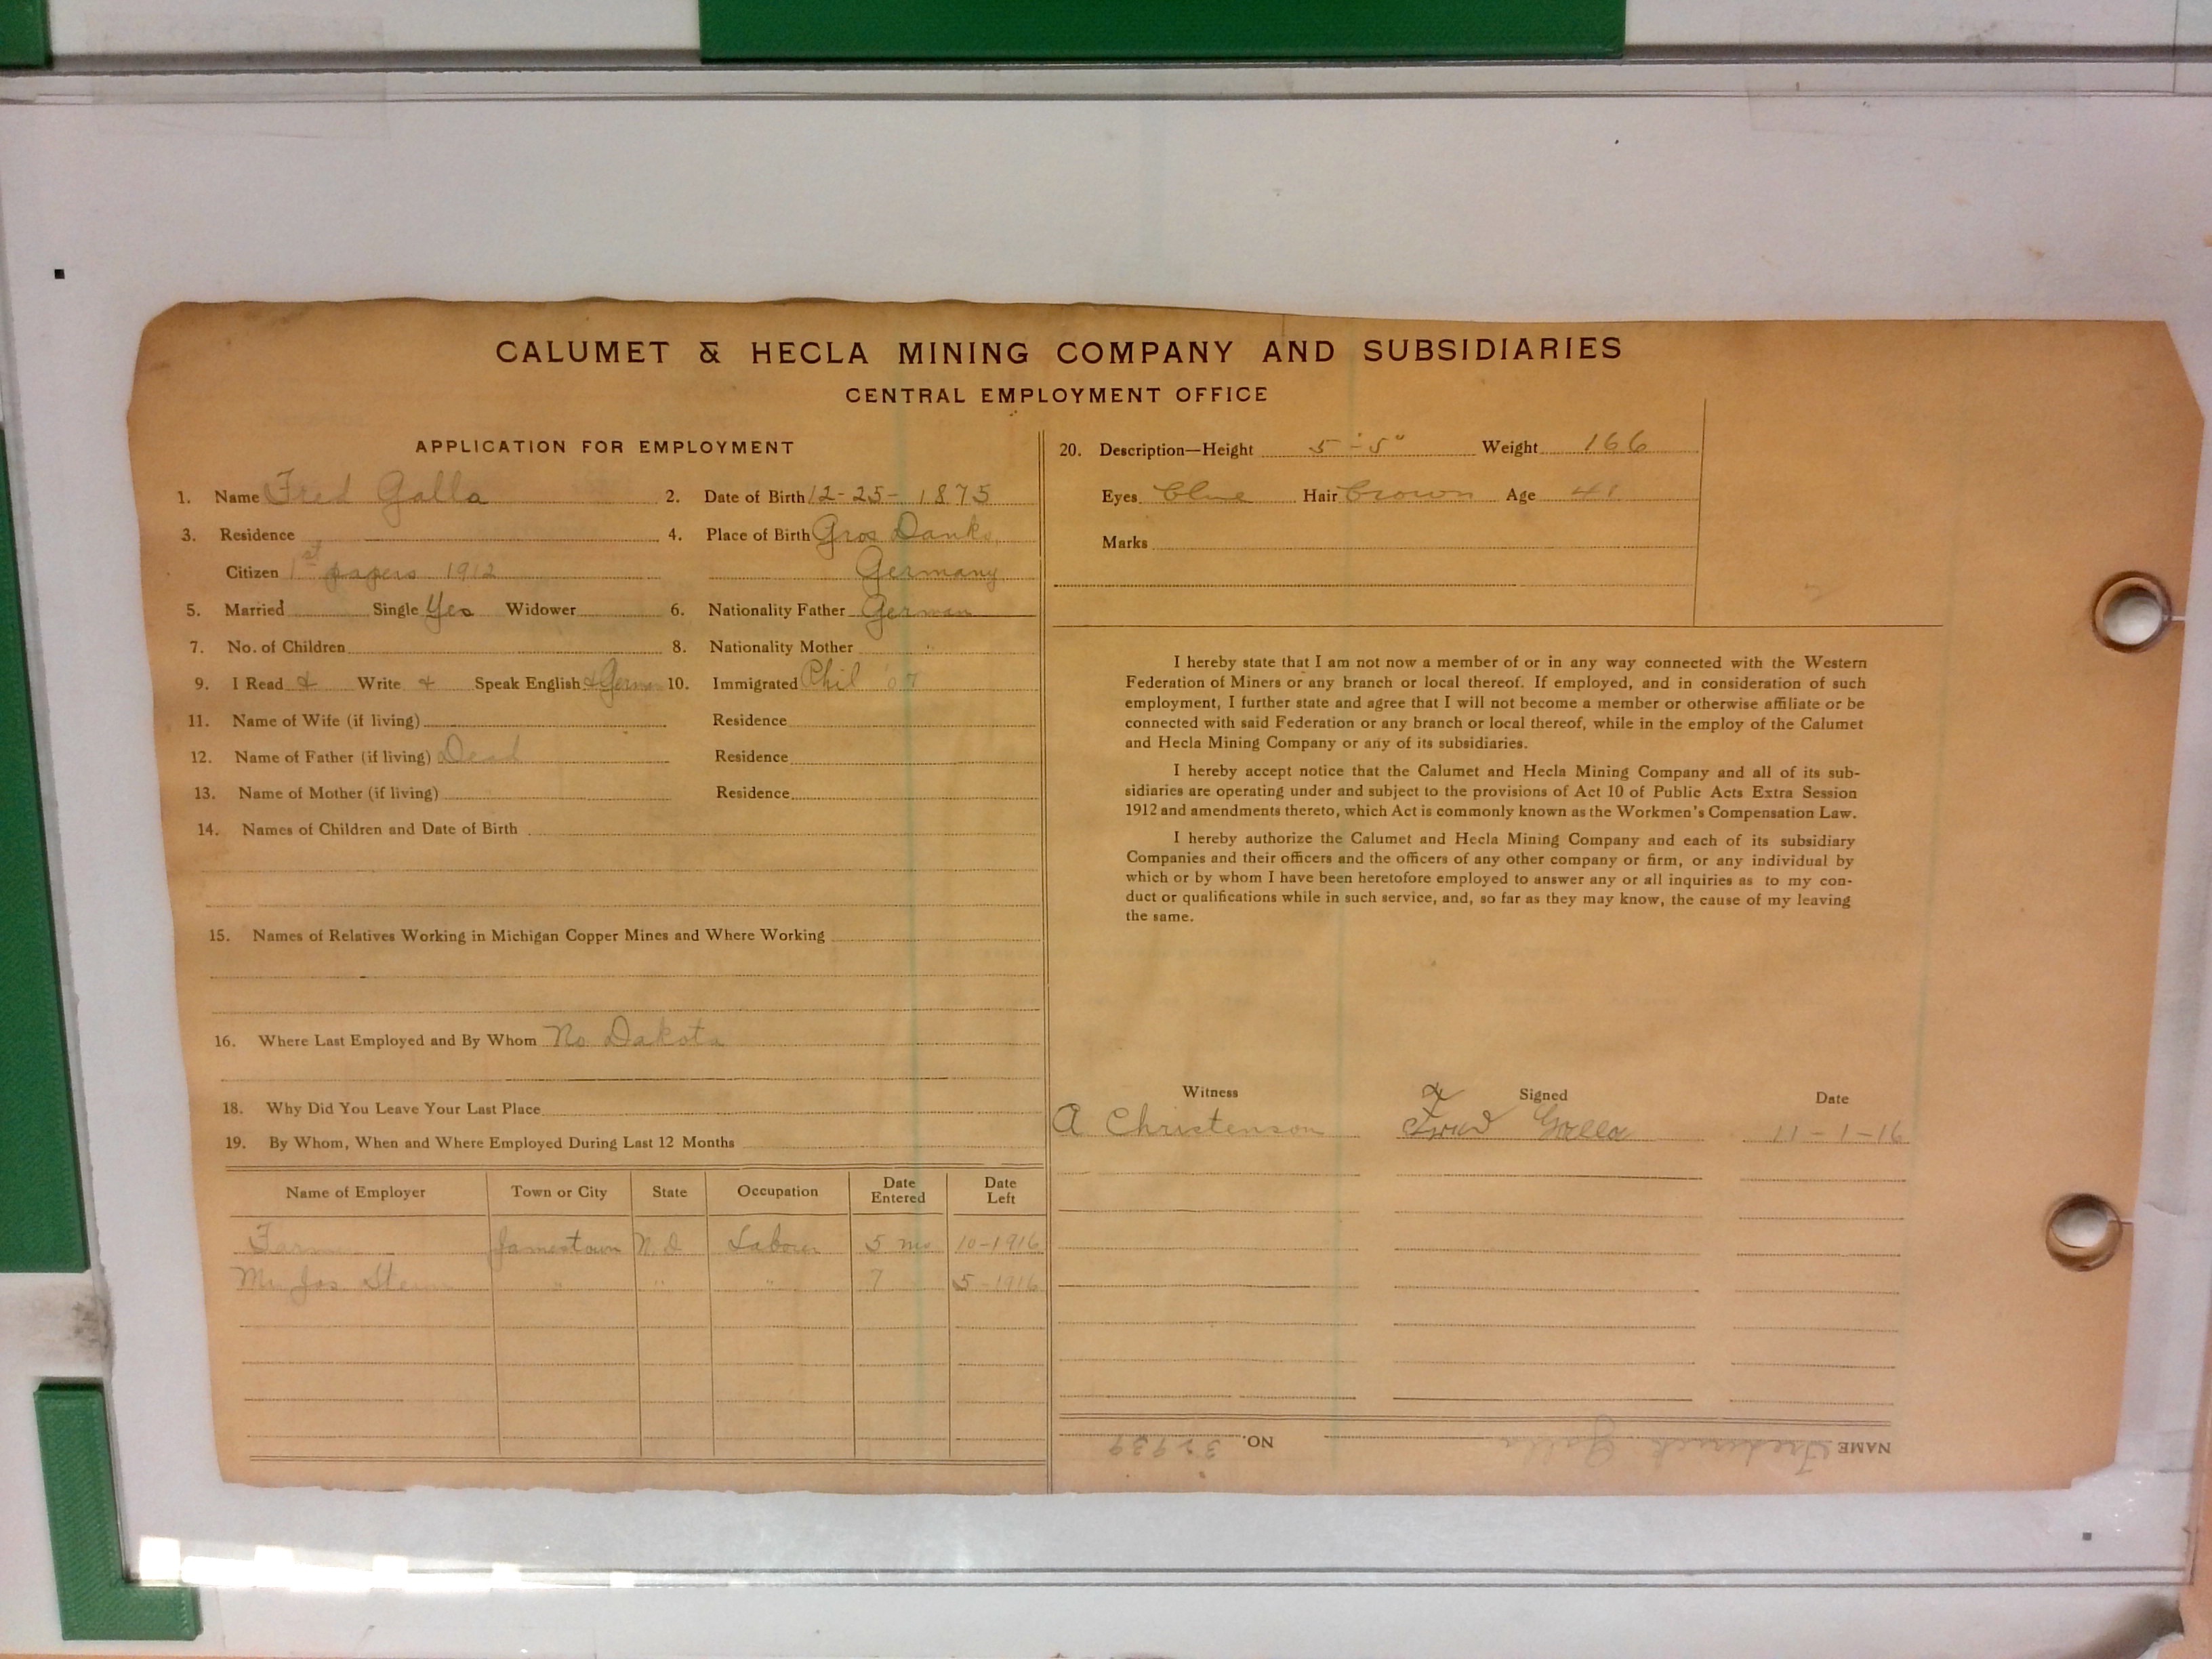 CALUMET & HECLA MINING COMPANY AND SUBSIDIARIES
CENTRAL EMPLOYMENT OFFICE
APPLICATION FOR EMPLOYMENT
1. Name Fred Galla 2. Date of Birth 12-25-1875
3. Residence 4. Place of Birth Gros Danks,
Citizen 1st papers 1912 Germany
5. Married Single Yes Widower 6. Nationality Father German
7. No. of Children 8. Nationality Mother "
9. I Read & Write & Speak English & German 10. Immigrated Phil '07
11. Name of Wife (if living) Residence
12. Name of Father (if living) Dead Residence
13. Name of Mother (if living) Residence
14. Names of Children and Date of Birth
15. Names of Relatives Working in Michigan Copper Mines and Where Working
16. Where Last Employed and By Whom No Dakota
18. Why Did You Leave Your Last Place
19. By Whom, When and Where Employed During Last 12 Months
Name of Employer Town or City State Occupation Date Entered Date Left
Farm Jamestown N.D. Laborer 5 mo 10-1916
Mr Jos. " " " 7 5-1916
20. Description—Height 5'-5" Weight 166
Eyes blue Hair Brown Age 41
Marks
I hereby state that I am not now a member of or in any way connected with the Western
Federation of Miners or any branch or local thereof. If employed, and in consideration of such
employment, I further state and agree that I will not become a member or otherwise affiliate or be
connected with said Federation or any branch or local thereof, while in the employ of the Calumet
and Hecla Mining Company or any of its subsidiaries.
I hereby accept notice that the Calumet and Hecla Mining Company and all of its sub-
sidiaries are operating under and subject to the provisions of Act 10 of Public Acts Extra Session
1912 and amendments thereto, which Act is commonly known as the Workmen's Compensation Law.
I hereby authorize the Calumet and Hecla Mining Company and each of its subsidiary
Companies and their officers and the officers of any other company or firm, or any individual by
which or by whom I have been heretofore employed to answer any or all inquiries as to my con-
duct or qualifications while in such service, and, so far as they may know, the cause of my leaving
the same.
Witness Signed Date
A Christenson x Fred Galla 11-1-16
NAME Frederick Galla NO. 32939